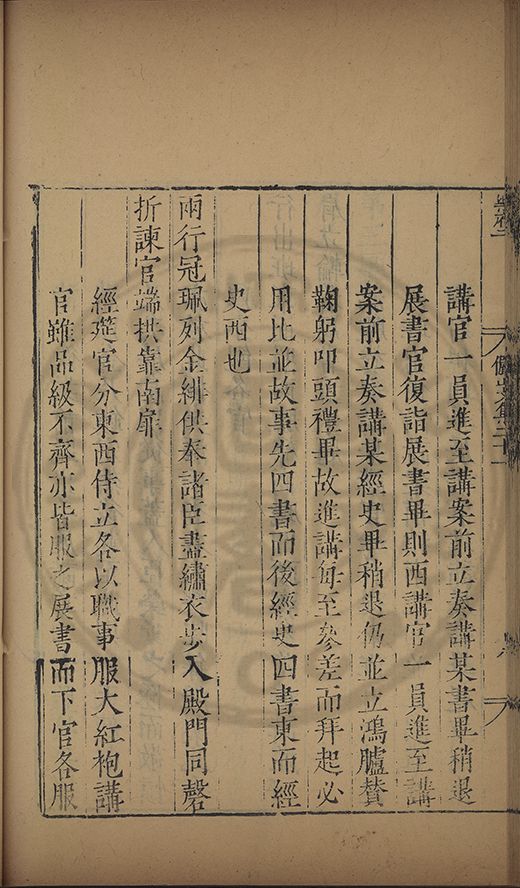 講官一員進至講案前立奏講某書畢稍退
展書官復詣展書畢則西講官一員進至講
案前立奏講某經史畢稍退仍並立鴻臚贊
鞠躬叩頭禮畢故進講每至參差而拜起必
用比並故事先四書而後經史四書東而經
史西也
兩行冠珮列金緋供奉諸臣盡繡衣步入殿門同磬
折諫官端拱靠南扉
經筵官分東西侍立各以職事服大紅袍講
官雖品級不齊亦皆服之展書而下官各服